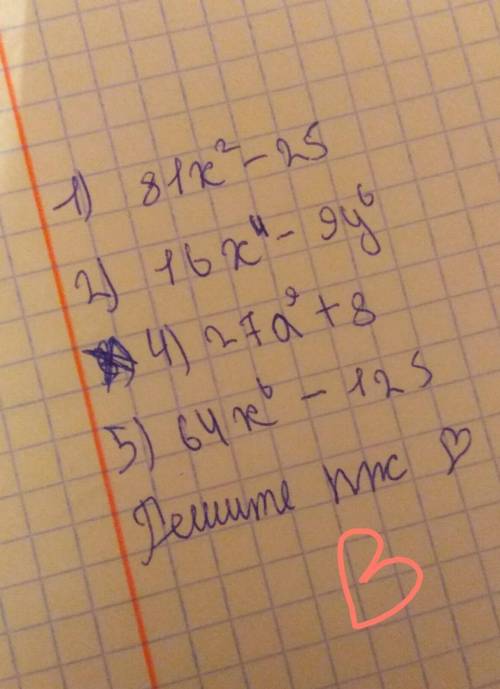 1) 81x² - 25
2) 16x⁴ - 9y⁶
4) 27a⁹ + 8
5) 64x⁶ - 125
Решите плс ♡